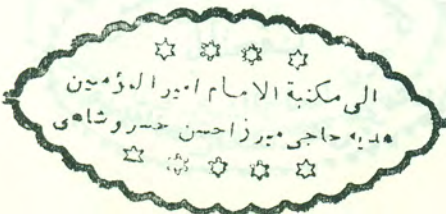 الى مكتبة الامام اميرالمؤمنين
هديه حاجى ميرزا حسن خسروشاهى